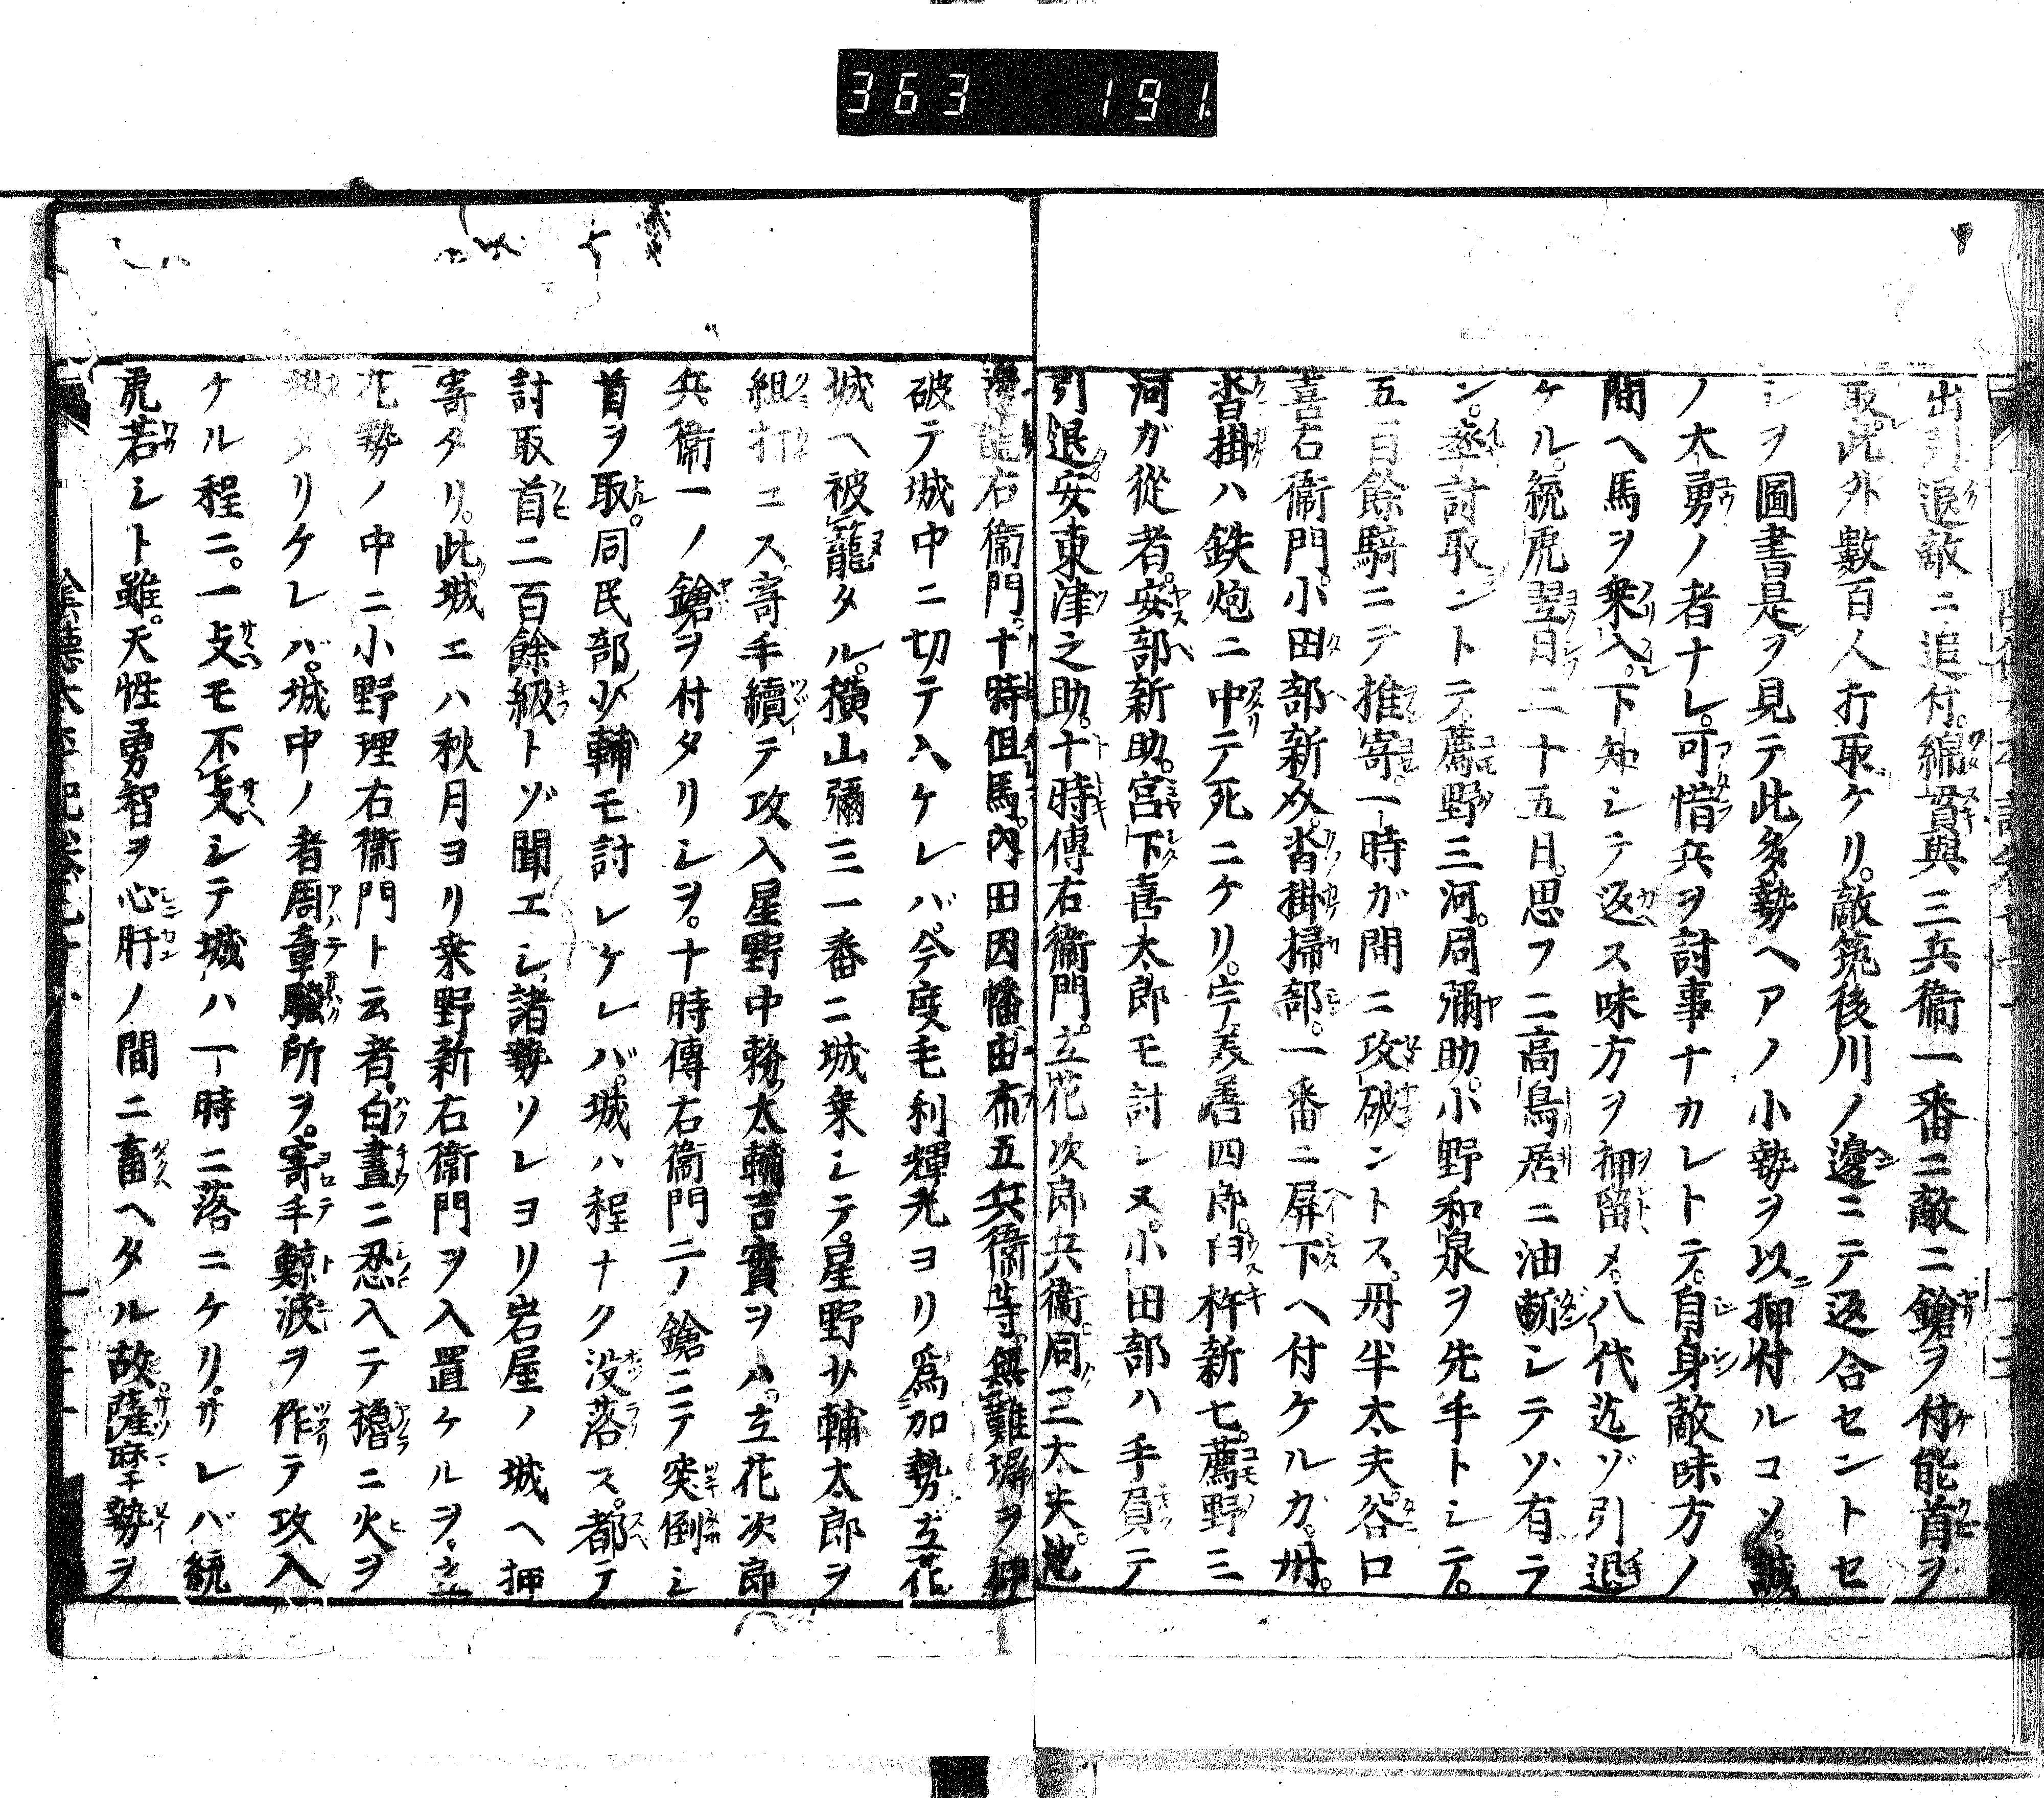 363 191
出引退敵ニ追付。綿貫與三兵衞一番ニ敵ニ鎗ヲ付能首ヲ
取。此外數百人打取ケリ。敵筑後川ノ邊ニテ返合セントセ
シヲ圖書是ヲ見テ此多勢ヘアノ小勢ヲ以押付ルコソ。誠
ノ大勇ノ者ナレ。可惜兵ヲ討事ナカレトテ。自身敵味方ノ
間ヘ馬ヲ乗入。下知シテ返ス味方ヲ押留メ。八代迄ゾ引退
ケル。統虎翌日二十五日。思フニ高鳥居ニ油断シテゾ有ラ
ン。丞討取ントテ薦野三河。同彌助。小野和泉ヲ先手トシテ。
五百餘騎ニテ推寄。一時ガ間ニ攻破ントス。丹半太夫谷口
喜右衞門。小田部新介。沓掛掃部。一番ニ屏下ヘ付ケルガ。丹。
沓掛ハ鉄炮ニ中テ死ニケリ。宇美善四郎。臼杵新七。薦野三
河ガ從者。安部新助。宮下喜太郎モ討レヌ。小田部ハ手負テ
引退安東津之助。十時傳右衞門。立花次郎兵衞同三太夫。池
邊龍右衞門。十時但馬。内田因幡由布五兵衞等。無難塀ヲ押
破テ城中ニ切テ入ケレバ。今度毛利輝光ヨリ為加勢立花
城ヘ被籠タル。横山彌三一番ニ城乗シテ。星野少輔太郎ヲ
組打ニス。寄手續テ攻入星野中務太輔吉實ヲハ。立花次郎
兵衞一ノ鎗ヲ付タリシヲ。十時傳右衞門二ノ鎗ニテ突倒シ
首ヲ取。同民部少輔モ討レケレバ。城ハ程ナク没落ス。都テ
討取首二百餘級トゾ聞エシ。諸勢ソレヨリ岩屋ノ城ヘ押
寄タリ。此城エハ秋月ヨリ桒野新右衞門ヲ入置ケルヲ。立
花勢ノ中ニ小野理右衞門ト云者。白晝ニ忍入テ櫓ニ火ヲ
タリケレバ。城中ノ者周章騒所ヲ。寄手鯨波ヲ作テ攻入
ケル程ニ。一支モ不支シテ城ハ一時ニ落ニケリ。サレバ統
虎若シト雖。天性勇智ヲ心肝ノ間ニ畜ヘタル故。薩摩勢ヲ